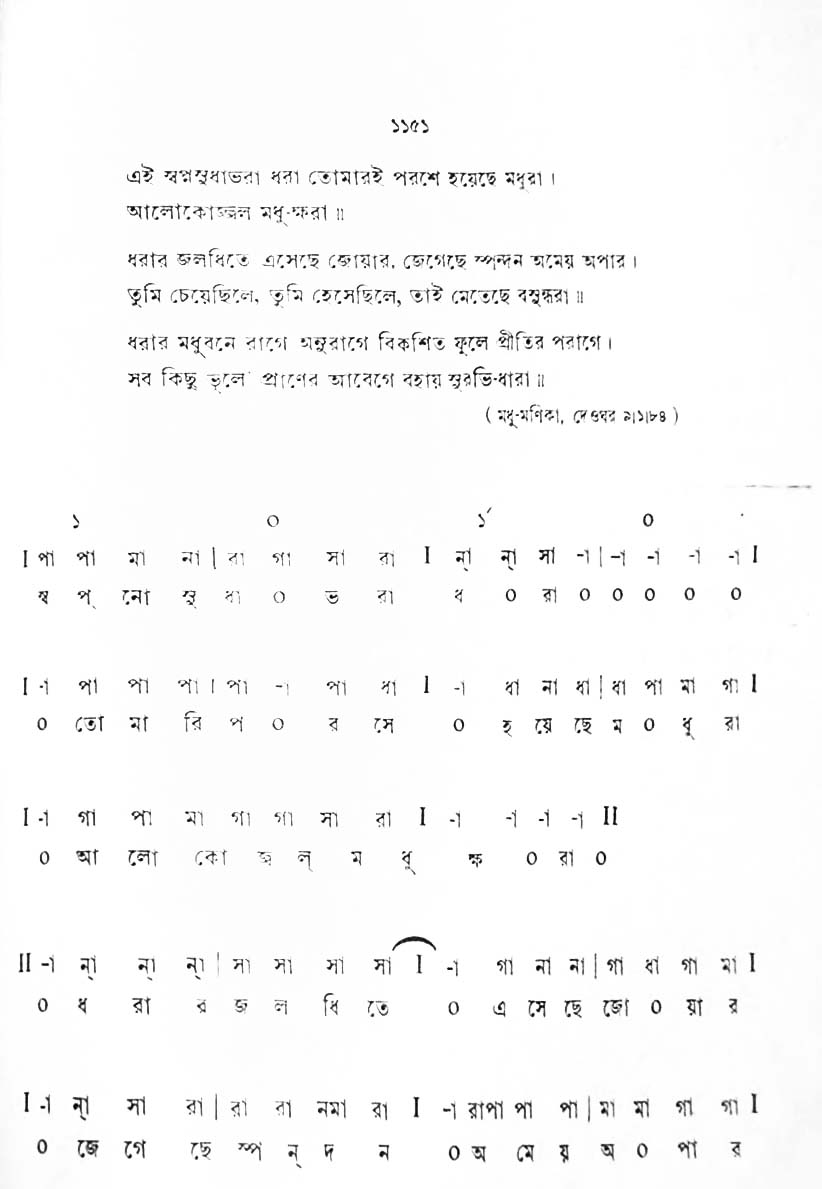 ১১৫১
এই স্বপ্নসুধাভরা ধরা তোমারই পরশে হয়েছে মধুরা ।
আলোকোজ্জল মধু-ক্ষরা ॥
ধরার জলধিতে এসেছে জোয়ার, জেগেছে স্পন্দন অমেয় অপার ।
তুমি চেয়েছিলে, তুমি হেসেছিলে, তাই মেতেছে বসুন্ধরা ॥
ধরার মধুবনে রাগে অনুরাগে বিকশিত ফুলে প্রীতির পরাগে ।
সব কিছু ভুলে প্রাণের আবেগে বহায় সুরভি-ধারা ॥
( মধু-মণিকা, দেওঘর ৯।১।৮৪ )
১ ০ ১´ ০
I পা পা মা না | রা গা সা রা I ন্া ন্া সা -া | -া -া -া -া I
স্ব প্ নো সু ধা ০ ভ রা ধ ০ রা ০ ০ ০ ০ ০
I -া পা পা পা । পা -া পা ধা I -া ধা না ধা | ধা পা মা গা I
০ তো মা রি প ০ র সে ০ হ য়ে ছে ম ০ ধু রা
I -া গা পা মা গা গা সা রা I -া -া -া -া II
০ আ লো কো জ্ব ল্ ম ধু ক্ষ ০ রা ০
II -া ন্া ন্া ন্া | সা সা সা সা I -া গা না না | গা ধা গা মা I
০ ধ রা র জ ল ধি তে ০ এ সে ছে জো ০ য়া র
I -া ন্া সা রা | রা রা নমা রা I -া রাপা পা পা | মা মা গা গা I
০ জে গে ছে স্প ন্ দ ন ০ অ মে য় অ ০ পা র